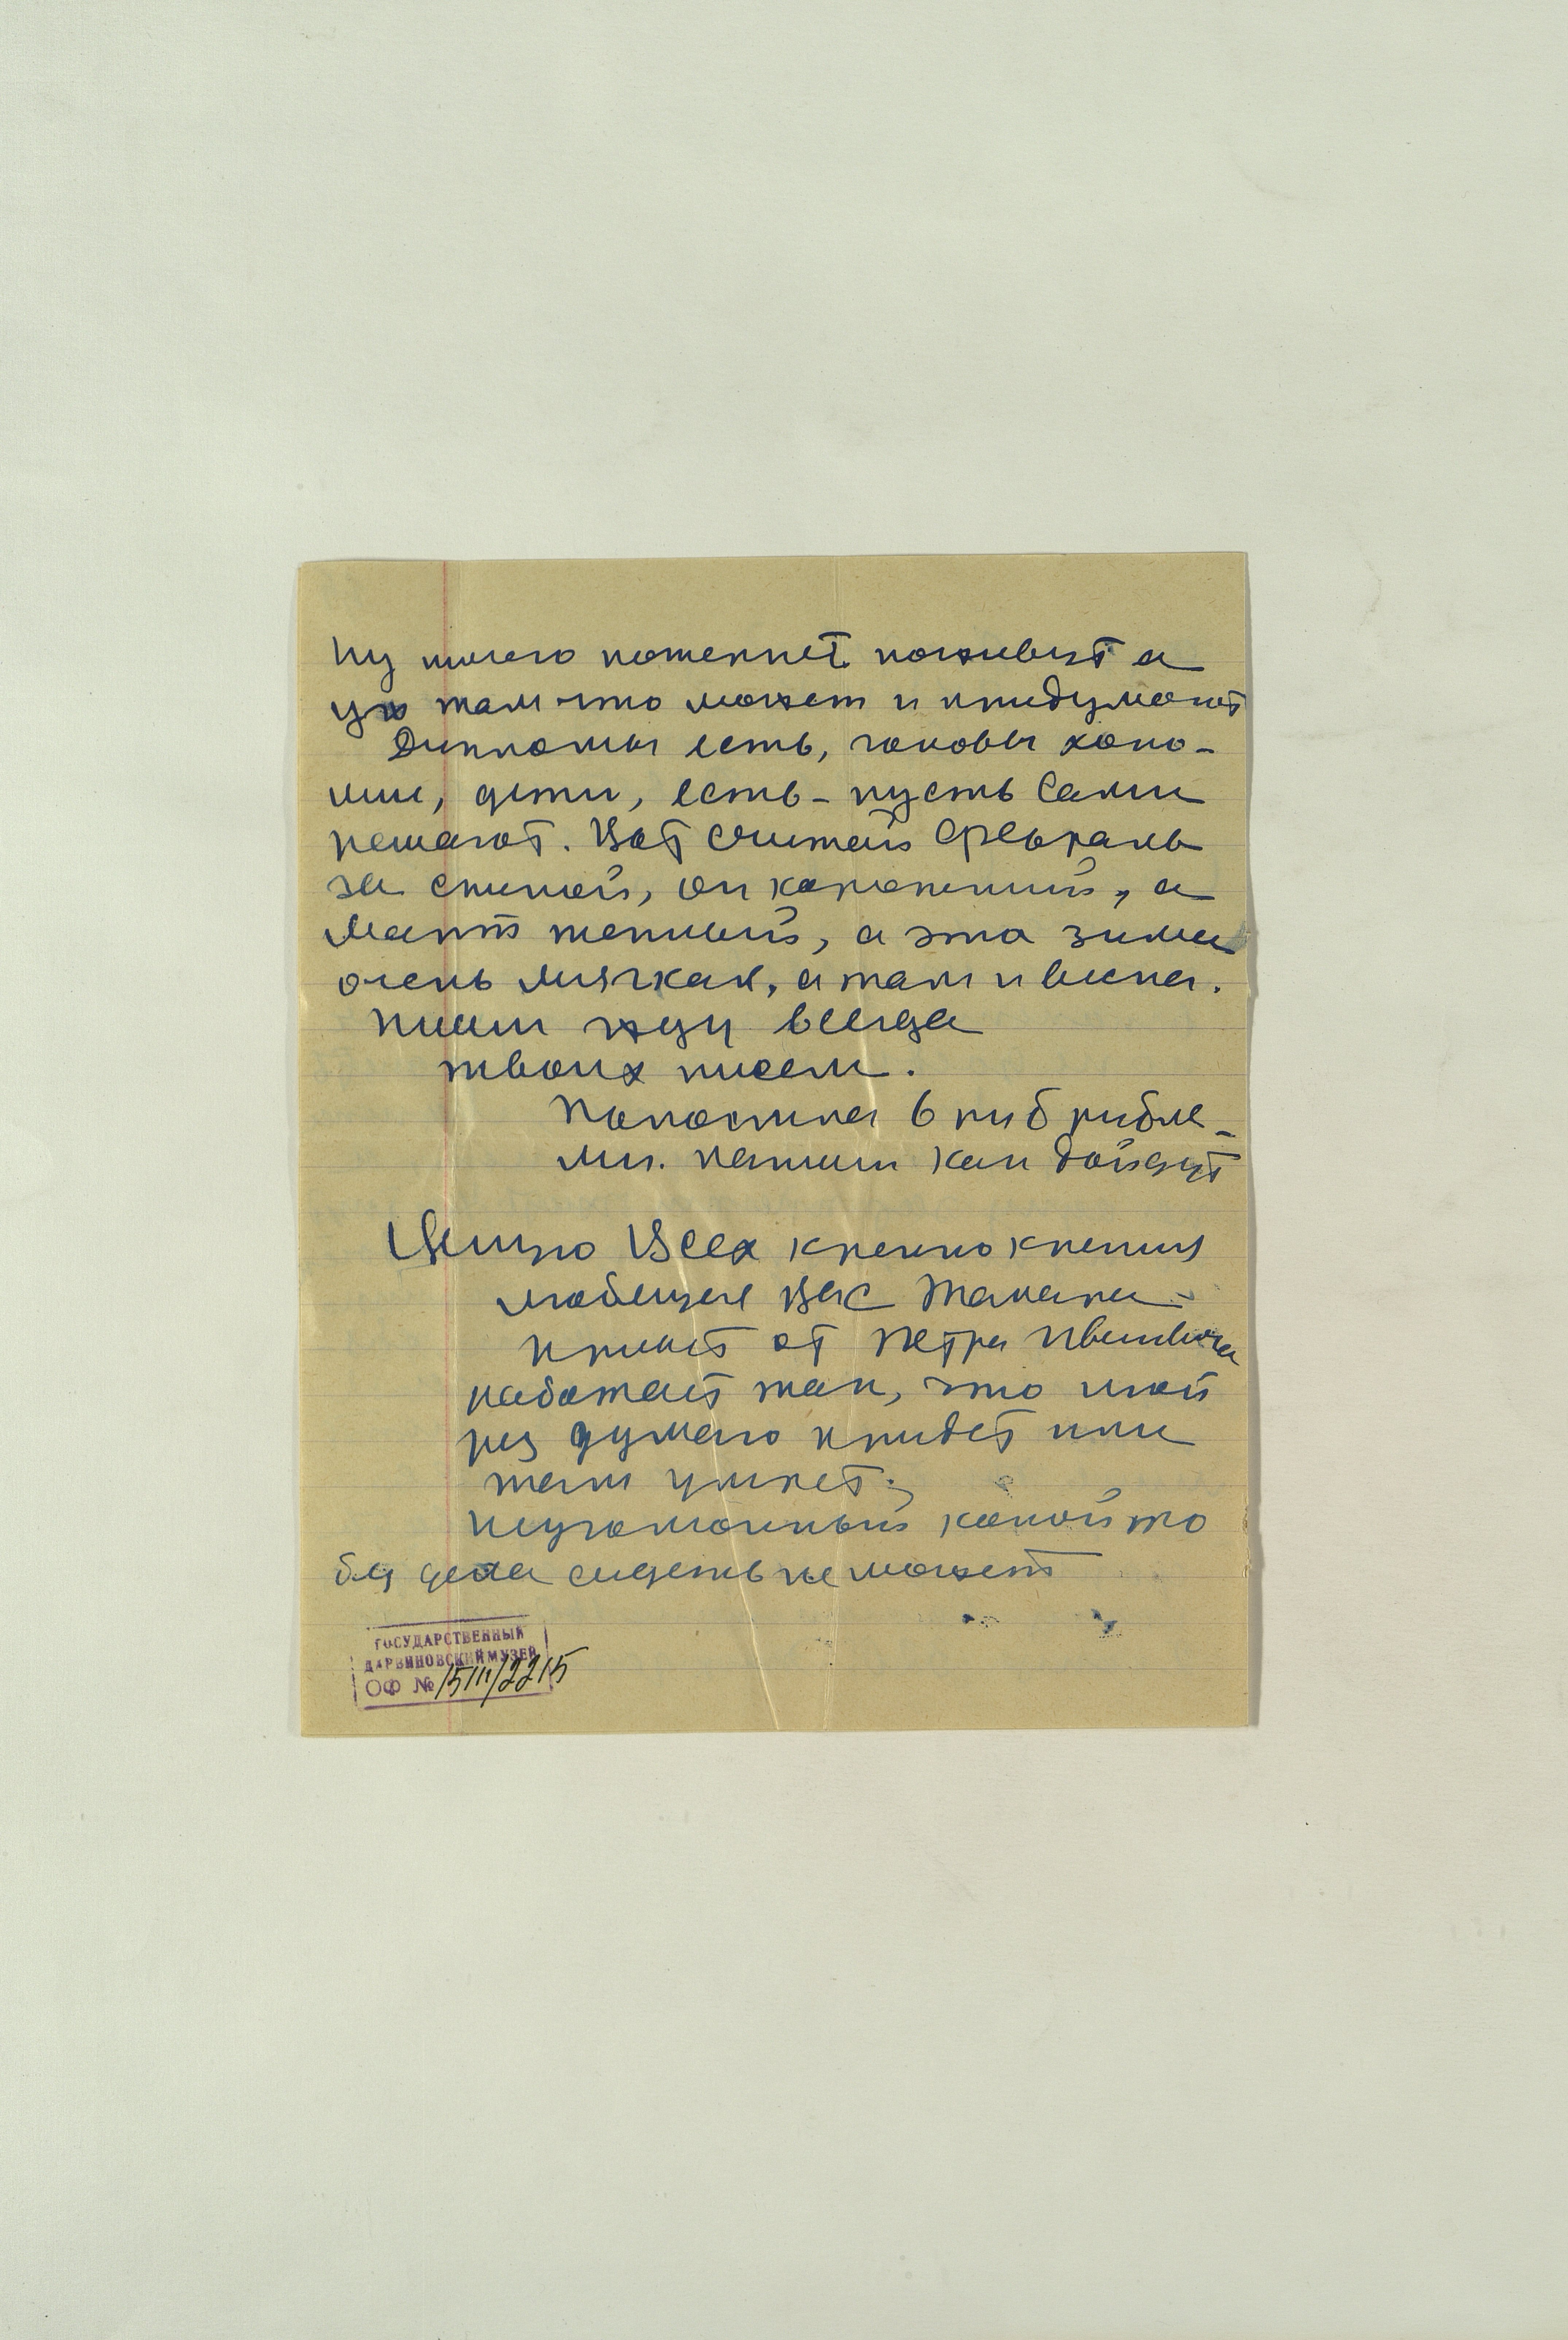 Ну ничего потерпет поживут а
уж там что может и придумают
Дипломы есть, головы хоро-
шие, дети, есть - пусть сами
решают. Вот считай Февраль
за спиной, он коротенький, а
Март теплый, а эта зима
очень мягкая, а там и весна.
Пиши жду всегда
твоих писем.
в рыб рыбле-
ми. напиши как дойдут
Целую Всех крепко крепко
любящая Вас Тамара
привет от Петра Ивановича
работает так, что иной
раз думаю придет или
там умрет.
неугомонный какой то
без дела сидеть не может
ГОСУДАРСТВЕННЫЙ
ДАРВИНОВСКИЙ МУЗЕЙ
ОФ № 15111/2215